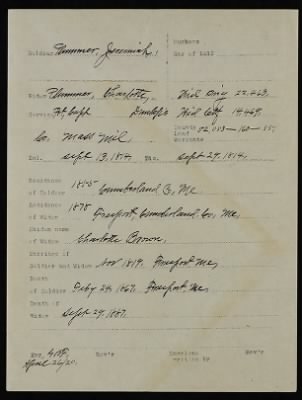 Numbers
Soldier: Plummer, Jeremiah, War of 1812
Widow: Plummer, Charlotte, Wid Orig 22.463,
Service: Capt Wid Ctf 14.469,
Co. Mass Mil. Bounty Land Warrants 52,083-160-55,
Enl. Sept 13, 1814, Dis. Sept 29, 1814,
Residence of Soldier 1855 Cumberland Co, Me
Residence of Widow 1878 Freeport, Cumberland Co, Me,
Maiden name of Widow Charlotte Brown,
Marriage of Soldier and Widow Nov 1819, Freeport Me,
Death of Soldier Feby 24, 1867, Freeport Me,
Death of Widow Sept 29, 1887.
Rev'r
Rev'r
April 26/20.